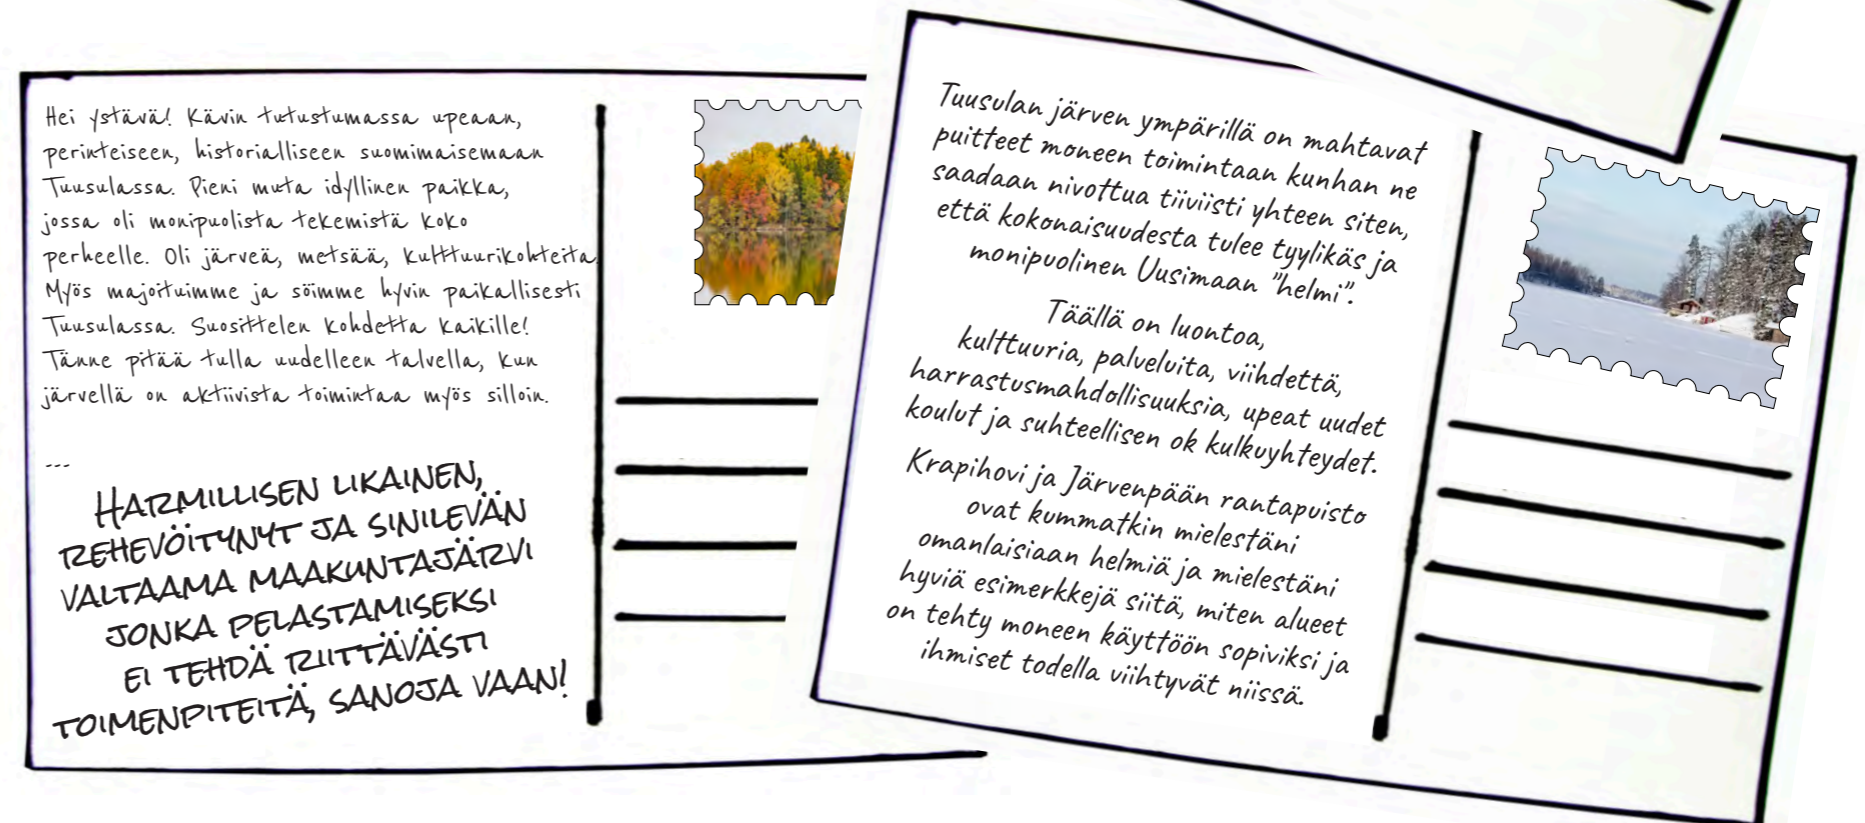 Hei ystävä! Kävin tutustumassa upeaan,
perinteiseen, historialliseen suomimaisemaan
Tuusulassa. Pieni muta idyllinen paikka,
jossa oli monipuolista tekemistä koko
perheelle. Oli järveä, metsää, kulttuurikohteita.
Myös majoituimme ja söimme hyvin paikallisesti
Tuusulassa. Suosittelen kohdetta kaikille!
Tänne pitää tulla uudelleen talvella, kun
järvellä on aktiivista toimintaa myös silloin.
---
HARMILLISEN LIKAINEN,
REHEVÖITYNYT JA SINILEVÄN
VALTAAMA MAAKUNTAJÄRVI
JONKA PELASTAMISEKSI
EI TEHDÄ RIITTÄVÄSTI
TOIMENPITEITÄ, SANOJA VAAN!
Tuusulan järven ympärillä on mahtavat
puitteet moneen toimintaan kunhan ne
saadaan nivottua tiiviisti yhteen siten,
että kokonaisuudesta tulee tyylikäs ja
monipuolinen Uusimaan "helmi".
Täällä on luontoa,
kulttuuria, palveluita, viihdettä,
harrastusmahdollisuuksia, upeat uudet
koulut ja suhteellisen ok kulkuyhteydet.
Krapihovi ja Järvenpään rantapuisto
ovat kummatkin mielestäni
omanlaisiaan helmiä ja mielestäni
hyviä esimerkkejä siitä, miten alueet
on tehty moneen käyttöön sopiviksi ja
ihmiset todella viihtyvät niissä.